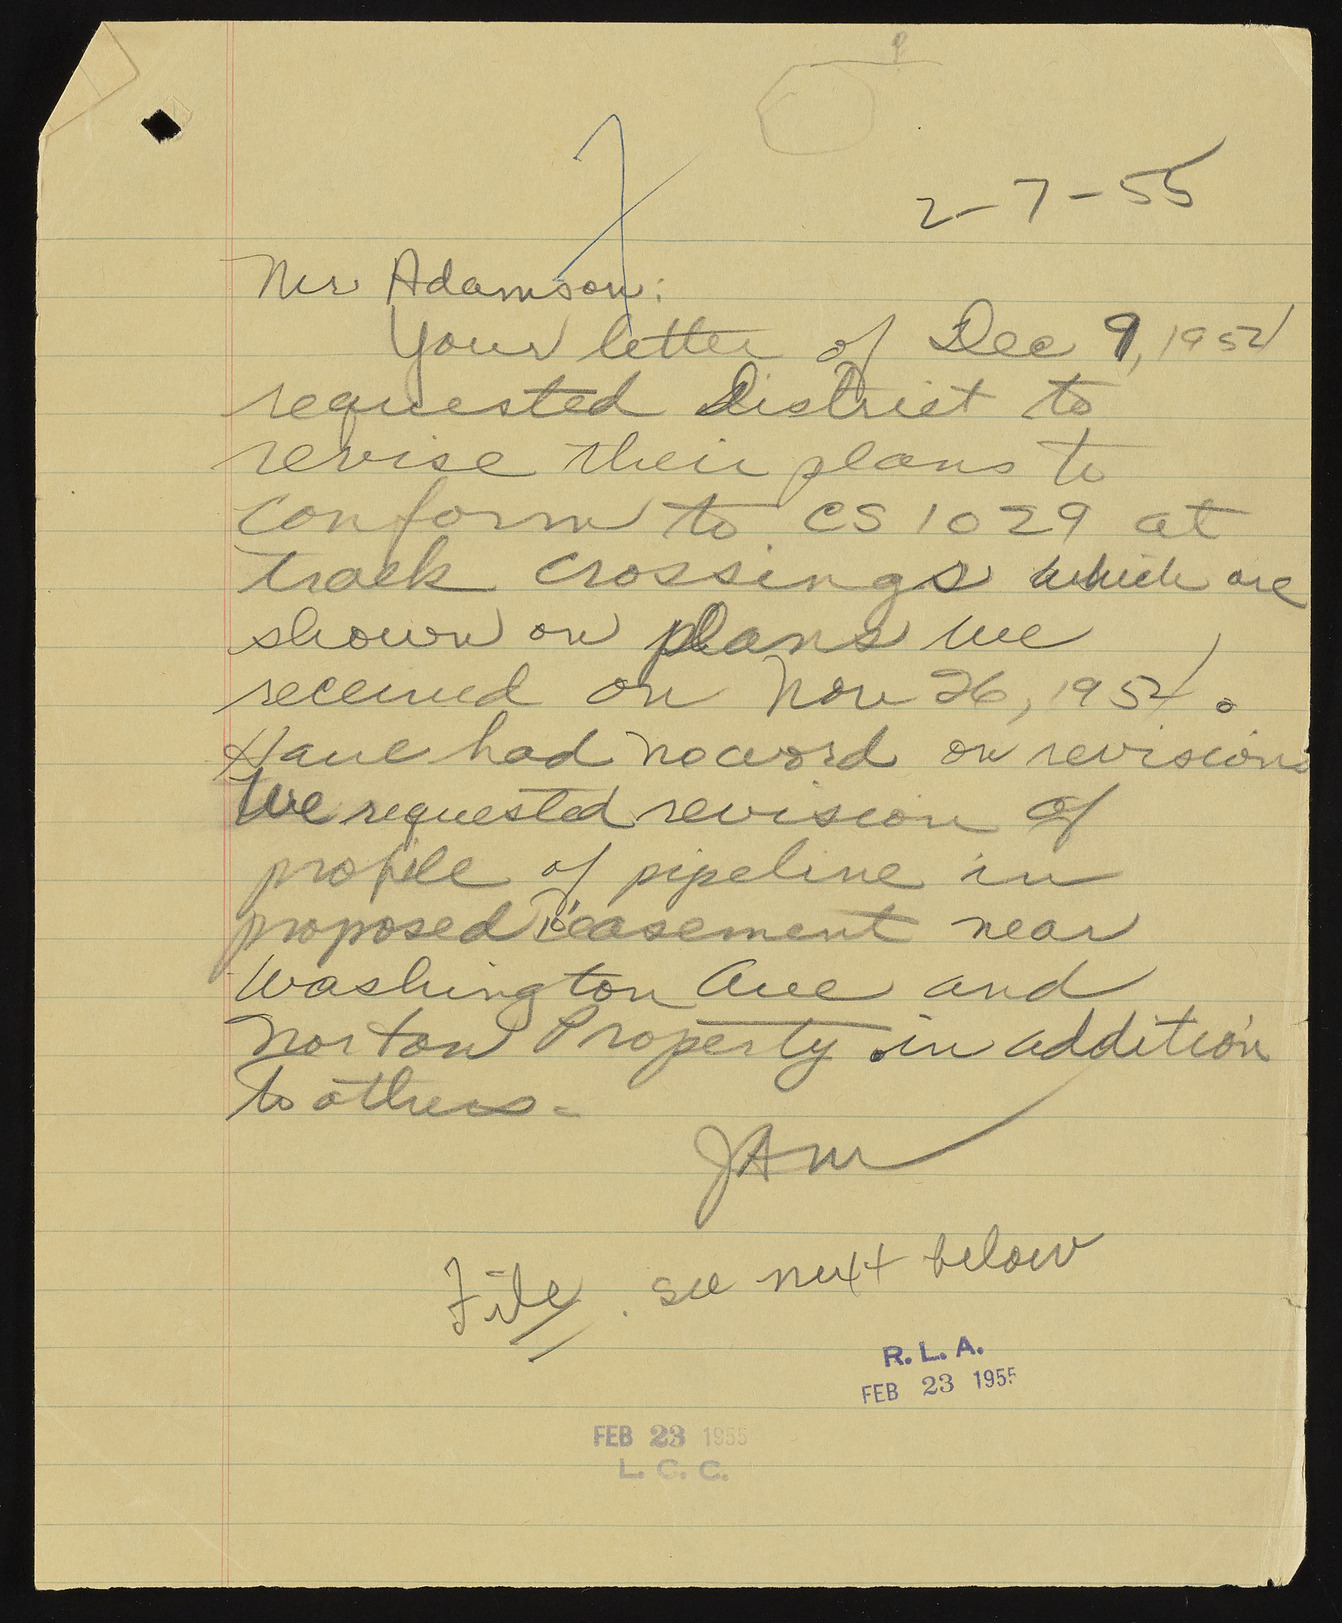 2-7-55
Mr Adamson:
Your letter of Dec 9, 1954
requested District to
revise their plans to
conform to CS 1029 at
track crossings which are
shown on plans we
received on Nov 26, 1954.
Have had no word on revisions
We requested revision of
profile of pipeline in
proposed 10' easement near
Washington Ave and
Norton Property in addition
to others-
JAM
File. see next below
R. L. A.
FEB 23 1955
FEB 23 1955
L. C. C.